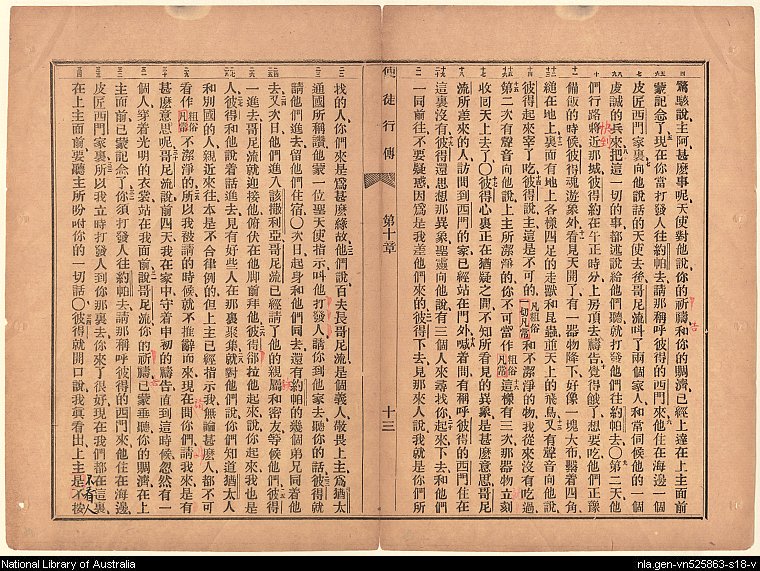 驚駭說主阿甚麽事呢天使對他說你的祈禱和你的賙濟已經上達在上主面前
蒙記念了現在你當打發人往約帕去請那稱呼彼得的西門來他住在海邊一個
皮匠西門家裏向他說話的天使去後哥尼流呌了兩個家人和常伺候他的一個
虔誠的兵來把這一切的事都述說給他們聽就打發他們往約帕去〇第二天他
們行路將近那城彼得約在午正時外上房頂去禱告覺得餓了想要吃他們正豫
備飯的時候彼得魂遊象外看見天開了有一器物降下好像一塊大布繫着四角
縋在地上裏面有地上各樣四足的走獸和昆蟲並天上的飛鳥又有聲音向他說
彼得起來宰了吃彼得說主這是不可的一切凡俗凡常和不潔淨的物我從來沒有吃過
第二次有聲音向他說上主所潔淨的你不可當作粗俗凡常這樣有三次那器物立刻
收回天上去了〇彼得心裏正在猶疑之間不知所看見的異象是甚麽意思哥尼
流所差來的人訪問到西門的家已經站在門外喊着問有稱呼彼得的西門住在
這裏沒有彼得還思想那異象聖靈向他說有三個人來尋找你起來下去和他們
一同前往不要疑惑因爲是我差他們來的彼得下去見那來人說我就是你們所
使徒行傳
第十章
十三
找的人你們來是爲甚麽緣故他們說百夫長哥尼流是個義人敬畏上主爲猶太
通國所稱讚他蒙一位聖天使指示呌他打發人請你到他家去聽你的話彼得就
請他們進去留他們住宿〇次日起身和他們同去還有約帕的幾個弟兄同着他
去又次日他們進入該撒利亞哥尼流已經請了他的親屬和密友等候他們彼得
一進去哥尼流就迎接他俯伏在他脚前拜他彼得卻拉他起來說你起來我也是
人彼得和他說着話進去見有好些人在那裏聚集就對他們說你們知道猶太人
和別國的人親近來往本是不合律例的但上主已經指示我無論甚麽人都不可
看作粗俗凡常不潔淨的所以我被請的時候就不推辭而來現在問你們請我來是有
甚麽意思呢哥尼流說前四天我在家中守着申初的禱告直到這時候忽然有一
個人穿着光明的衣裳站在我面前說哥尼流你的祈禱已蒙垂聽你的賙濟在上
主面前已蒙記念了你須打發人往約帕去請那稱呼彼得的西門來他住在海邊
皮匠西門家裏所以我立時打發人到你那裏去你來了很好現在我們都在這裏
在上主面前要聽主所吩咐你的一切話〇彼得就開口說我眞看出上主是不按
不看人
National Library of Australia
nla.gen-vn525863-s18-v